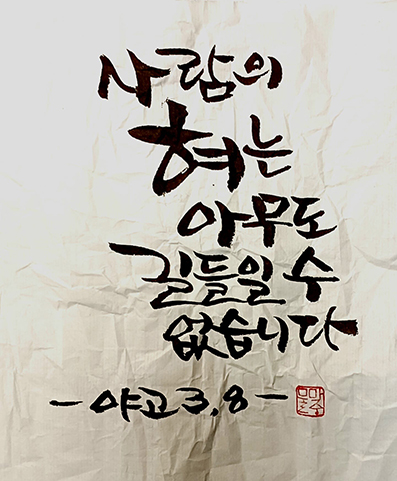 사람의
혀는
아무도
길들일 수
없습니다
- 야고 3,8 -